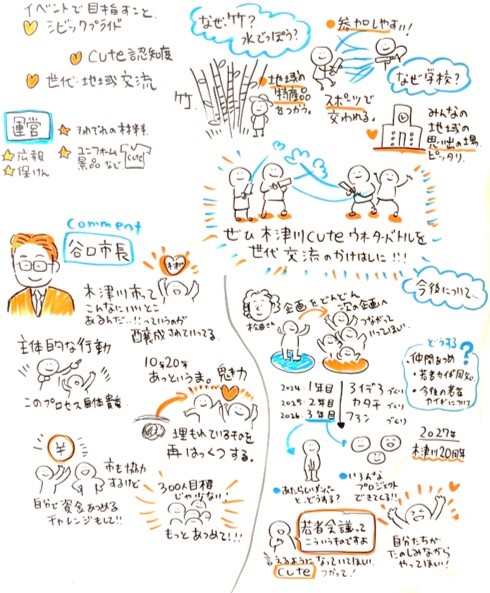 イベントで目指すこと
シビックプライド
Cute認知度
世代・地域交流
運営
それぞれの材料
広報
保けん
ユニフォーム
景品など
cute
なぜ竹?
水でっぽう?
竹
地域の
特産品
をつかう。
参加しやすい!
スポーツで
交われる。
なぜ学校?
みんなの
地域の
思い出の場。
ピッタリ。
ぜひ木津川cuteウォーターバトルを
世代交流のかけはしに!!!
comment
谷口市長
木津川市って
こんなにいいとこ
あるんだ…!!っていうのが
醸成されていってる。
主体的な行動
このプロセス自体貴重
10年20年
あっというま。
魅力
埋もれているものを
再はっくつする。
¥
市も協力
するけど
自分で資金あつめる
チャレンジもして!!
300人目標
じゃ少ない!
もっとあつめて!!!
今後について…
企画をどんどん
次の企画へ
つながって
いってほしい。
どうする?
・仲間あつめ
2024.1年目
2025.2年目
2026.3年目
アイデアづくり
カタチづくり
ファンづくり
2027年
木津川20周年
あたらしいメンバー
と、どうある?
いろんな
プロジェクト
できてくる!!
若者会議って
こういうものですよ
言えるようになっていてほしい。
cuteつかって!
自分たちが
たのしみながら
やってほしい!